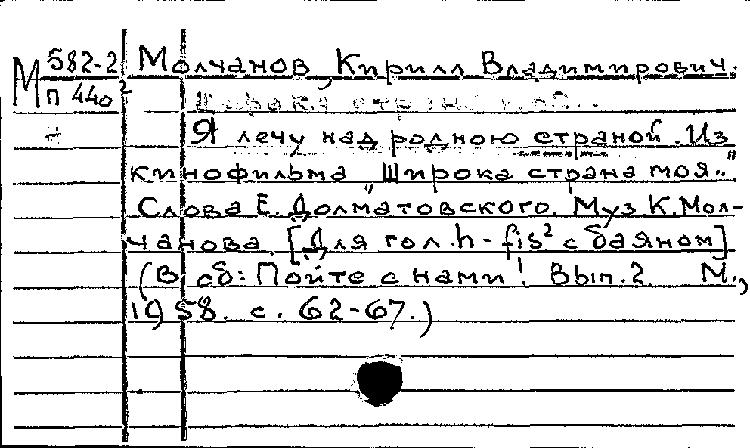 М 582-2 Молчанов, Кирилл Владимирович.
п 440²
Я лечу над родною страной. Из
кинофильма "Широка страна моя.."
Слова Е. Долматовского. Муз К. Мол-
чанова. [Для гол. h - fis² с баяном]
(В сб: Пойте с нами! Вып. 2. М.,
1958. с. 62-67.)